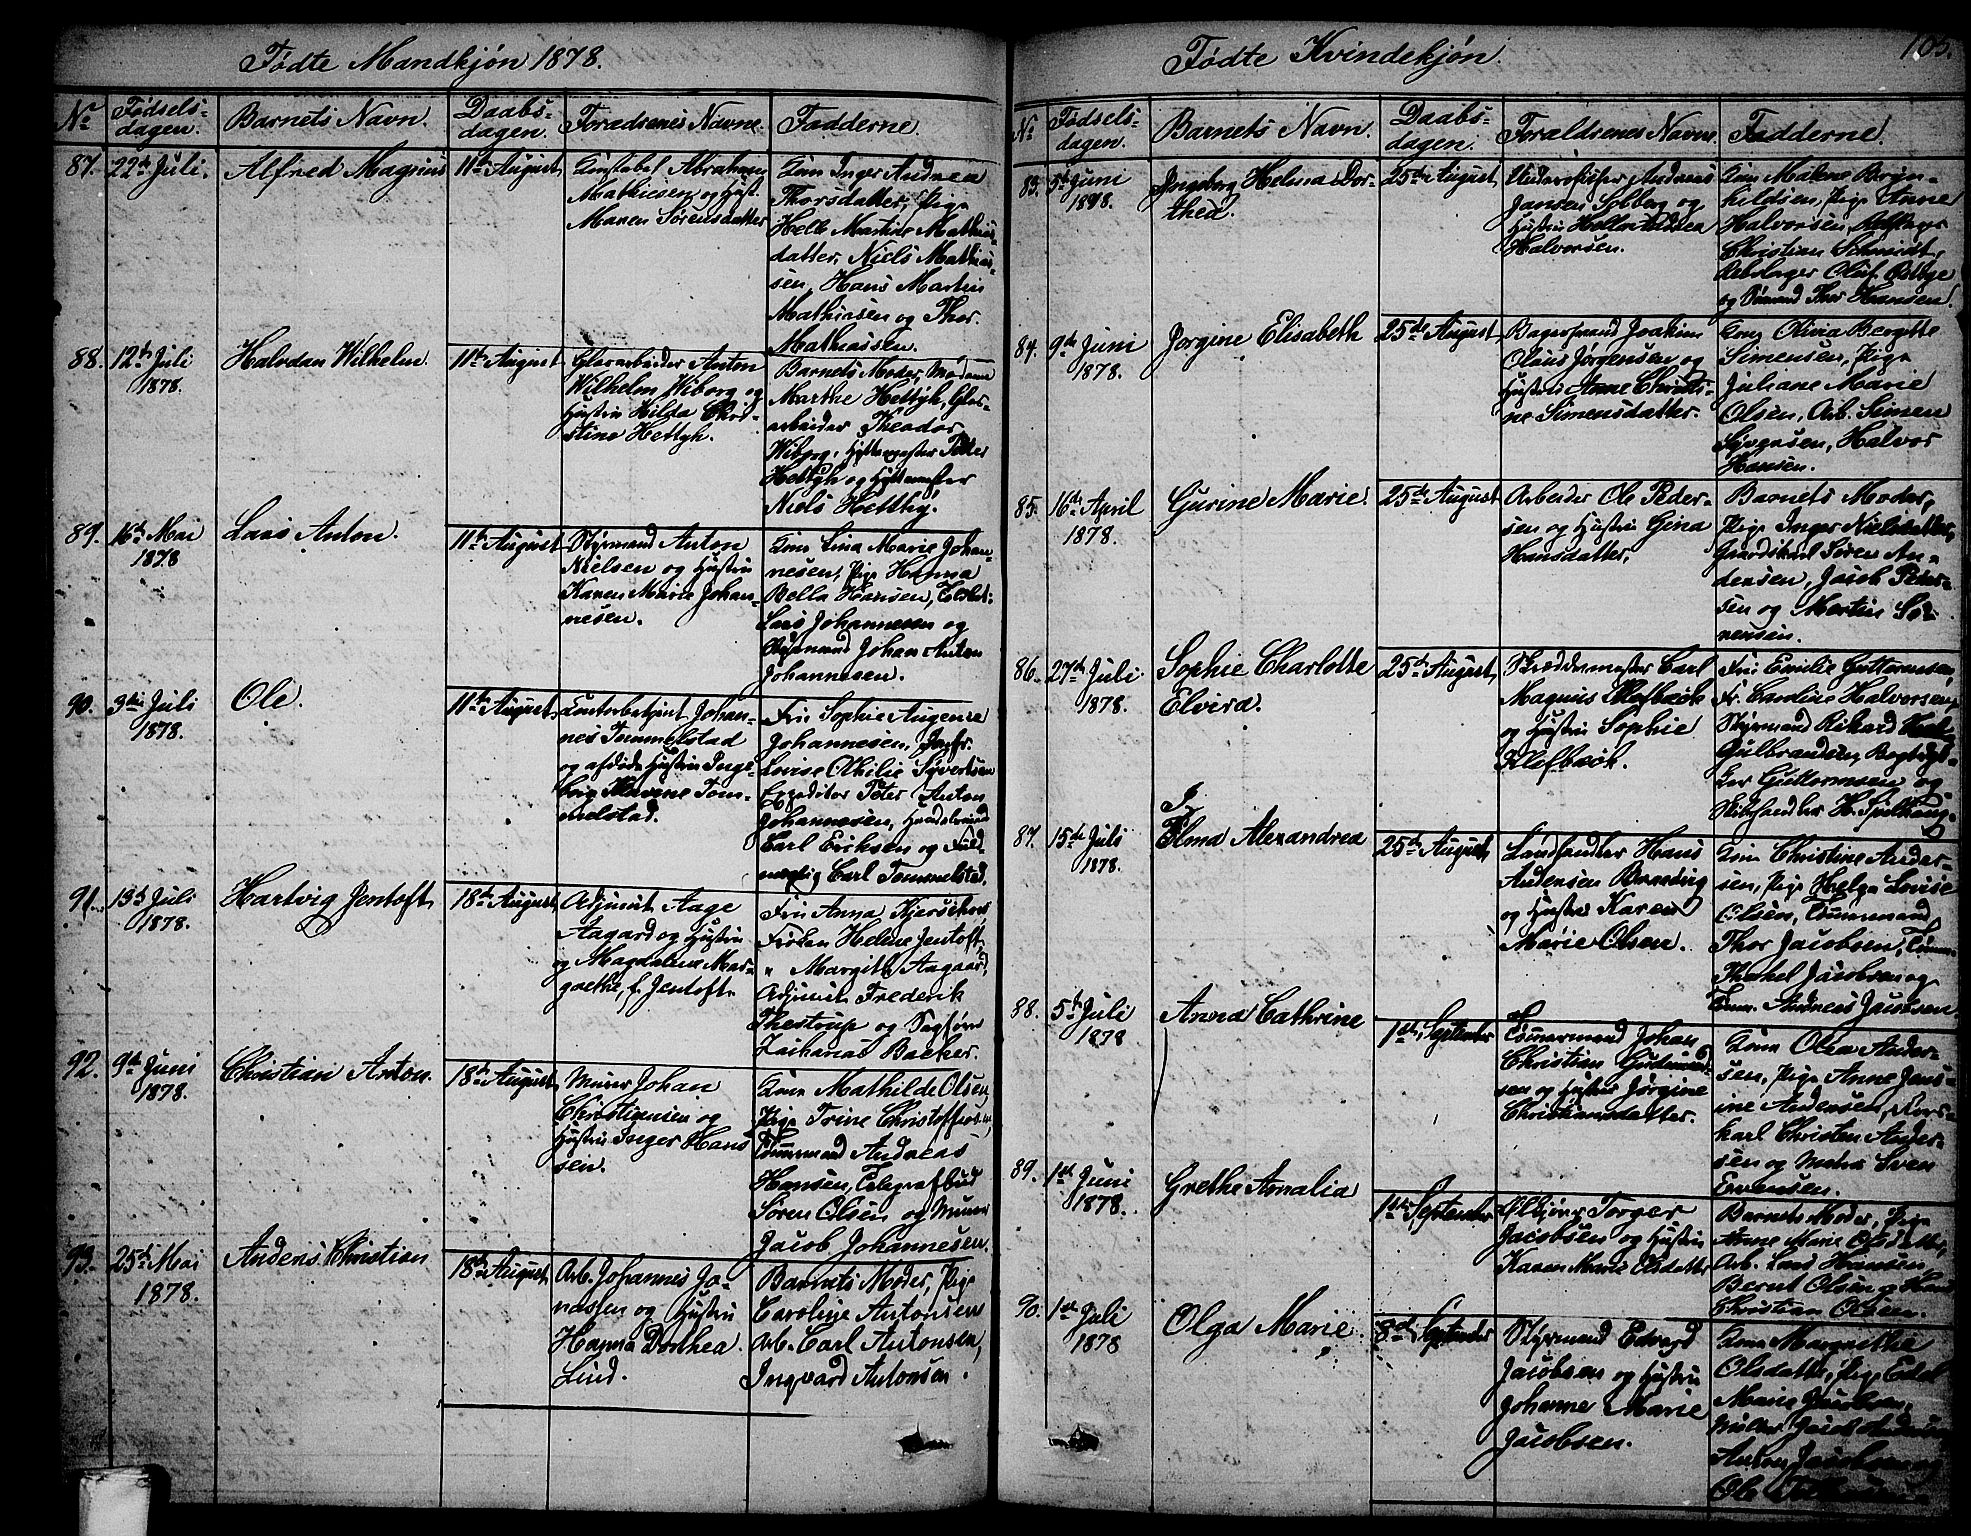 Fødte Mandkjøn 1878.
No
Fødsels-
dagen.
Barnets Navn.
Daabs-
dagen.
Foraldrenes Navne.
Fadderne.
87. 22de Juli.
Alfred Magnius
11te August
Konstabel Abraham
Mathiesen og Hust.
Maren Sørensdatter
Kone Inger Andrea
Thorsdatter, Pige
Helle Martine Mathias-
datter, Niels Mathias-
sen, Hans Martin
Mathiasen og Thor
Mathiassen.
88. 12te Juli
1878.
Halvdan Wilhelm.
11te August
Glasarbeider Anton
Wilhelm Wiborg og
Hustru Hilda Chri-
stine Hettyh.
Barnets Moder, Madame
Marthe Hettyh, Glas-
arbeider Theodor
Wiborg, Hyttemester Peter
Hettyh og Hyttemester
Niels Hettby.
89. 16de Mai
1878
Lars Anton.
11te August
Styrmand Anton
Nielsen og Hustru
Karen Marie Johan-
nesen.
Kone Lina Marie Johan-
nesen, Pige Hanna
Bella Hansen,
Lars Johannesen og
Styrmand Johan Anton
Johannesen.
90. 3die Juli
1878.
Ole.
11te August
Contorbetjent Johan-
nes Tommelstad
og afdøde Hustru Inge-
borg Tom-
melstad.
Fru Sophie Augense
Johannesen, Jagfr.
Lovise Othilie Syvertsen
Expeditør Peter Anton
Johannesen,
Carl Eriksen og Fuld-
mægtig Carl Tommelstad.
91. 13de Juli
1878.
Hartvig Jentoft
18de August
Adjunct Aage
Aagard og Hustru
og Magdalene Mar-
grethe, f. Jentoft.
Fru Anna
Frøken Helene Jentoft
" Margith Aagaard,
Adjunct Frederik
Thestrup og Sagfører
Zacharias Backer.
92. 9de Juni
1878.
Christian Anton.
18de August
Murer Johan
Christiansen og
Hustru Inger Hans
sen.
Kone Mathilde Olsen,
Pige Trine Christoffersen,
Tømmermand Andreas
Hansen, Telegrafbud
Søren Olsen og Murer
Jacob Johannesen.
93. 25de Mai
1878.
Anders Christian
18de August
Arb. Johannes Jo-
nassen og Hustru
Hanna Dorthea
Lind.
Barnets Moder, Pige
Caroline Antonsen
Arb. Carl Antonsen,
Ingvard Antonsen.
Fødte Kvindekjøn.
105.
No
Fødsels-
dagen.
Barnets Navn.
Daabs-
dagen.
Foraldrenes Navne.
Fadderne.
83. 5te Juni
1878.
Ingeborg Helma Dor-
thea.
25de August
Underofficer Andreas
Jansen Solberg og
Hustru Helle Aldrea
Halvorsen.
Kone Malene Bryn-
hildsen, Pige Anne
Halvorsen,
Christian Schmidt,
Rebslager Oluf
og Sømand Thor Hansen.
84. 9de Juni
1878.
Jørgine Elisabeth
25de August
Bagersvend Joakim
Olaus Jørgensen og
Hustru Anne Christi-
ne Simensdatter.
Kone Olivia Bergitte
Simensen, Pige
Juliane Marie
Olsen, Arb. Simen
Halvor
Hansen.
85. 16de April
1878.
Gurine Marie.
25de August
Arbeider Ole Peder-
sen og Hustru Gina
Hansdatter.
Barnets Moder,
Pige Inger Nielsdatter,
Gaardskarl Søren An-
dersen, Jacob Peder-
sen og Martin Sø-
rensen.
86. 27de Juli
1878.
Sophie Charlotte
Elvira.
25de August
Skræddermester Carl
Magnus Klefbeck
og Hustru Sophie
Klefbeck.
Fru Emilie Guttormsen,
Fr. Caroline Halvorsen,
Styrmand Rikard
Gulbrandsen,
Guttormsen og
87. 15de Juli
1878.
Elma Alexandrea
25de August
Landhandler Hans
Andersen
og Hustru Karen
Marie Olsen.
Kone Christine Ander-
sen, Pige Helga Lovise
Olsen, Tømmermand
Thor Jacobsen, Tømm.
Mikael Jacobsen og
Tømm. Andreas Jacobsen
88. 5te Juli
1878
Anna Cathrine
1ste September
Tømmermand Johan
Christian Gudmund-
sen og Hustru Jørgine
Christiansdatter.
Kone Olea Ander-
sen, Pige Anne Jens-
ine Andersen,
karl Christen Ander-
sen og Sven
Evensen.
89. 1ste Juni
1878.
Grethe Amalia
1ste September
Torger
Jacobsen og Hustru
Karen Marie Olsdatter
Barnets Moder, Pige
Anne Marie Olsdatter,
Arb. Lars Hansen,
Bernt Olsen og Hans
Christian Olsen.
90. 1ste Juli
1878
Olga Marie.
8de September
Styrmand Edvard
Jacobsen og Hustru
Johanne Marie
Jacobsen.
Kone Margrethe
Olsdatter, Pige
Marie Jacobsen,
Jacob
Anton Jacobsen og
Ole